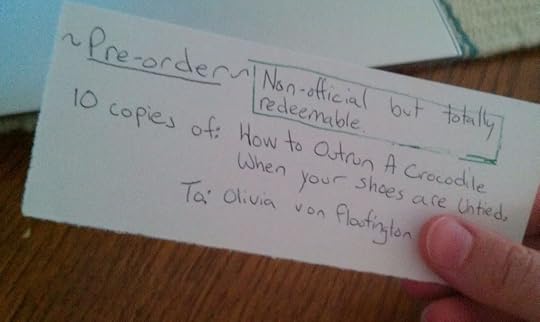 ~Pre-order~
Non-official but totally
redeemable.
10 copies of: How to Outrun A Crocodile
When your shoes are Untied.
To: Olivia von Floatington